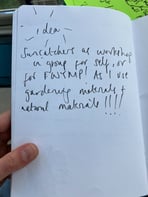 idea
Suncatchers as workshop
in group for self, or
for FWTMP! As I use
gardening materials +
natural materials !!!!